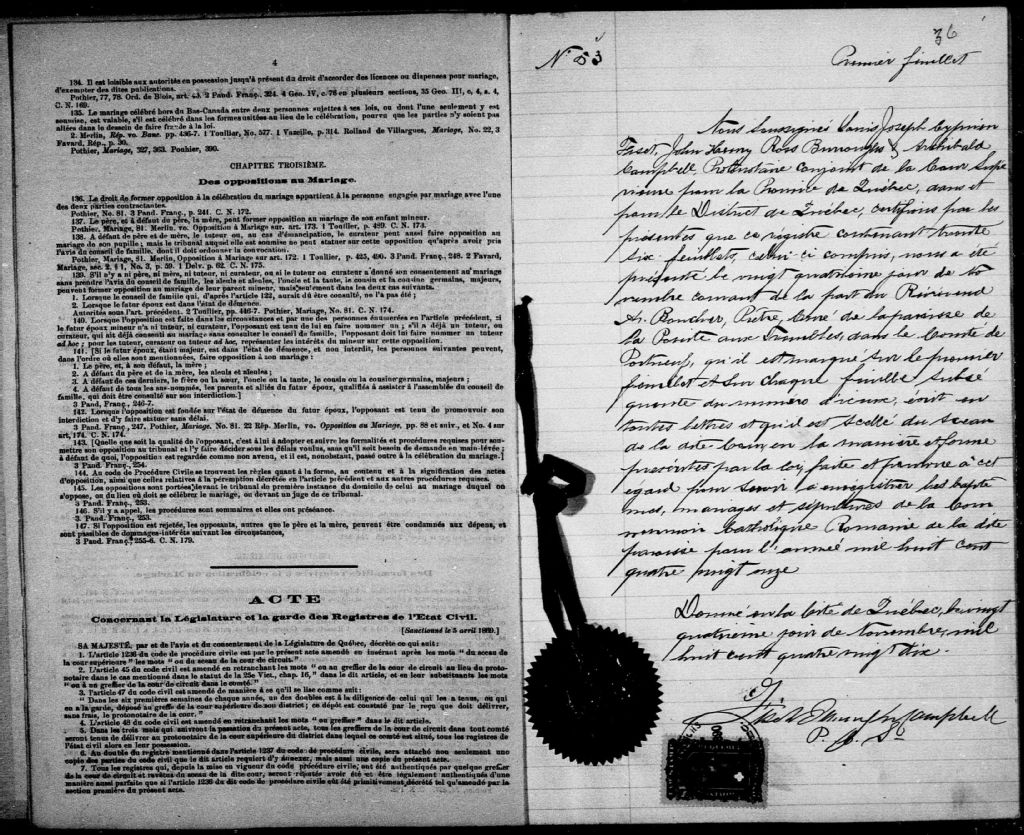 4
134. Il est loisible aux autorités en possession jusqu'à présent du droit d'accorder des licences ou dispenses pour mariage,
d'exempter des dites publications.
Pothier, 77, 78. Ord. de Blois, art. 43. 2 Pand. Franç. 324. 4 Geo. IV, c. 78 en plusieurs sections, 35 Geo. III, c, 4, s. 4,
C. N. 169.
135. Le mariage célébré hors du Bas-Canada entre deux personnes sujettes à ses lois, ou dont l'une seulement y est
soumise, est valable, s'il est célébré dans les formes usitées au lieu de la célébration, pourvu que les parties n'y soient pas
allées dans le dessein de faire fraude à la loi.
2. Merlin, Rép. vo. Banc. pp. 436-7. 1 Toullier, No. 577. 1 Vazeille, p. 314. Rolland de Villargues, Mariage, No. 22, 3
Favard, Rép., p. 30.
Pothier, Mariage, 327, 363. Pouhier, 390.
CHAPITRE TROISIÈME.
Des oppositions au Mariage.
136. Le droit de former opposition à la célébration du mariage appartient à la personne engagée par mariage avec l'une
des deux parties contractantes.
Pothier, No. 81. 3 Pand. Franç., p. 241. C. N. 172.
137. Le père, et à défaut de père, la mère, peut former opposition au mariage de son enfant mineur.
Pothier, Mariage, 81. Merlin, vo. Opposition à Mariage sur art. 173. 1 Toullier, p. 489. C. N. 173.
138. A défaut de père et de mère, le tuteur ou, au cas d'émancipation, le curateur peut aussi faire opposition au
mariage de son pupille; mais le tribunal auquel elle est soumise ne peut statuer sur cette opposition qu'après avoir pris
l'avis du conseil de famille, dont il doit ordonner la convocation.
Pothier, Mariage, 81. Merlin, Opposition à Mariage sur art. 172. 1 Toullier, p. 425, 490. 3 Pand. Franç., 248. 2 Favard,
Mariage, sec. 2, § 1, No. 3, p. 59. 1 Delv. p. 62. C. N. 175.
139. S'il n'y a ni père, ni mère, ni tuteur, ni curateur, ou si le tuteur ou curateur a donné son consentement au mariage
sans prendre l'avis du conseil de famille, les aïeuls et aïeules, l'oncle et la tante, le cousin et la cousine germains, majeurs,
peuvent former opposition au mariage de leur parent mineur, mais seulement dans les deux cas suivants.
1. Lorsque le conseil de famille qui, d'après l'article 122, aurait dû être consulté, ne l'a pas été;
2. Lorsque le futur époux est dans l'état de démence.
Autorités sous l'art. précédent. 2 Toullier, pp. 446-7. Pothier, Mariage, No. 81. C. N. 174.
140. Lorsque l'opposition est faite dans les circonstances et par une des personnes énumérées en l'article précédent, si
le futur époux mineur n'a ni tuteur, ni curateur, l'opposant est tenu de lui en faire nommer un; s'il a déjà un tuteur, ou
curateur, qui ait déjà consenti au mariage sans consulter le conseil de famille, l'opposant doit lui faire nommer un tuteur
ad hoc; pour les tuteur, curateur ou tuteur ad hoc, représenter les intérêts du mineur sur cette opposition.
141. [Si le futur époux, étant majeur, est dans l'état de démence, et non interdit, les personnes suivantes peuvent,
dans l'ordre où elles sont mentionnées, faire opposition à son mariage:
1. Le père, et, à son défaut, la mère;
2. A défaut du père et de la mère, les aïeuls et aïeules;
3. A défaut de ces derniers, le frère ou la sœur, l'oncle ou la tante, le cousin ou la cousine germains, majeurs;
4. A défaut de tous les sus-nommés, les parents et alliés du futur époux, qualifiés à assister à l'assemblée du conseil de
famille, qui doit être consulté sur son interdiction.]
3 Pand. Franç., 246-7.
142. Lorsque l'opposition est fondée sur l'état de démence du futur époux, l'opposant est tenu de promouvoir son
interdiction et d'y faire statuer sans délai.
3 Pand. Franç., 247. Pothier, Mariage, No. 81. 22 Rép. Merlin, vo. Opposition au Mariage, pp. 88 et suiv., et No. 4 sur
art. 174. C. N. 174.
143. [Quelle que soit la qualité de l'opposant, c'est à lui à adopter et suivre les formalités et procédures requises pour soumettre
son opposition au tribunal et l'y faire décider sous les délais voulus, sans qu'il soit besoin de demande en main-levée;
à défaut de quoi, l'opposition est regardée comme non avenue, et il est, nonobstant, passé outre à la célébration du mariage.]
3 Pand. Franç., 254.
144. Au code de Procédure Civile se trouvent les règles quant à la forme, au contenu et à la signification des actes
d'opposition, ainsi que celles relatives à la péremption décrétée en l'article précédent et aux autres procédures requises.
145. Les oppositions sont portées devant le tribunal de première instance du domicile de celui au mariage duquel on
s'oppose, ou du lieu où doit se célébrer le mariage, ou devant un juge de ce tribunal.
3 Pand. Franç., 253.
146. S'il y a appel, les procédures sont sommaires et elles ont préséance.
3. Pand. Franç., 253.
147. Si l'opposition est rejetée, les opposants, autres que le père et la mère, peuvent être condamnés aux dépens, et
sont passibles de dommages-intérêts suivant les circonstances,
3 Pand. Franç., 255-6. C. N. 179.
ACTE
Concernant la Législature et la garde des Registres de l'Etat Civil.
[Sanctionné le 5 avril 1869.]
SA MAJESTÉ, par et de l'avis et du consentement de la Législature de Québec, décrète ce qui suit:
1. L'article 1236 du code de procédure civile est par le présent acte amendé en insérant après les mots "du sceau de
la cour supérieure" les mots "ou du sceau de la cour de circuit."
2. L'article 45 du code civil est amendé en retranchant les mots "ou au greffier de la cour de circuit au lieu du protonotaire
dans le cas mentionné dans le statut de la 25e Vict., chap. 16," dans le dit article, et en leur substituant les mots
"ou à un greffier de la cour de circuit dans le comté."
3. l'article 47 du code civil est amendé de manière à ce qu'il se lise comme suit:
"Dans les six premières semaines de chaque année, un des doubles est à la diligence de celui qui les a tenus, ou qui
en a la garde, déposé au greffe de la cour supérieure de son district; ce dépôt est constaté par le reçu que doit délivrer,
sans frais, le protonotaire de la cour."
4. L'article 48 du code civil est amendé en retranchant les mots "ou greffier" dans le dit article.
5. Dans les trois mois qui suivront la passation du présent acte, tous les greffiers de la cour de circuit dans tout comté
seront tenus de délivrer au protonotaire de la cour supérieure du district dans lequel ce comté est situé, tous les registres de
l'état civil alors en leur possession.
6. Au double du registre mentionné dans l'article 1237 du code de procédure civile, sera attaché non seulement une
copie des parties du code civil que le dit article requiert d'y annexer, mais aussi une copie du présent acte.
7. Tous les registres qui, depuis la mise en vigueur du code de procédure civile, ont été authentiqués par quelque greffier
de la cour de circuit et revêtus du sceau de la dite cour, seront réputés avoir été et être légalement authentiqués d'une
manière aussi parfaite que si l'article 1236 du dit code de procédure civile eût été primitivement décrété tel qu'amendé par la
section première du présent acte.
36
No 53
Premier feuillet
Nous Soussignés Louis Joseph Cyprien
Fiset, John Henry Ross Burroughs & Archibald
Campbell, Protonotaire conjoint de la Cour Supé
rieure pour la Province de Québec, dans et
pour le District de Québec, certifions par les
présentes que ce registre contenant trente
six feuillets, celui-ci compris, nous a été
présenté le vingt quatrième jour de No
vembre courant de la part du Révérend
A. Boucher, Prêtre, Curé de la paroisse de
la Pointe aux Trembles, dans le Comté de
Portneuf, qu'il est marqué sur le premier
feuillet et sur chaque feuillet subsé
quent du numéro d'iceux, écrit en
toutes lettres et qu'il est scellé du sceau
de la dite Cour en la manière et forme
prescrites par la loi, faite et pourvue à cet
égard pour servir à enregistrer les baptê
mes, mariages et sépultures de la Com
munion Catholique Romaine de la dite
paroisse pour l'année mil huit cent
quatre vingt onze
Donné en la Cité de Québec, le vingt
quatrième jour de Novembre, mil
huit cent quatre vingt dix.
Fiset Burroughs Campbell
P. C. S.